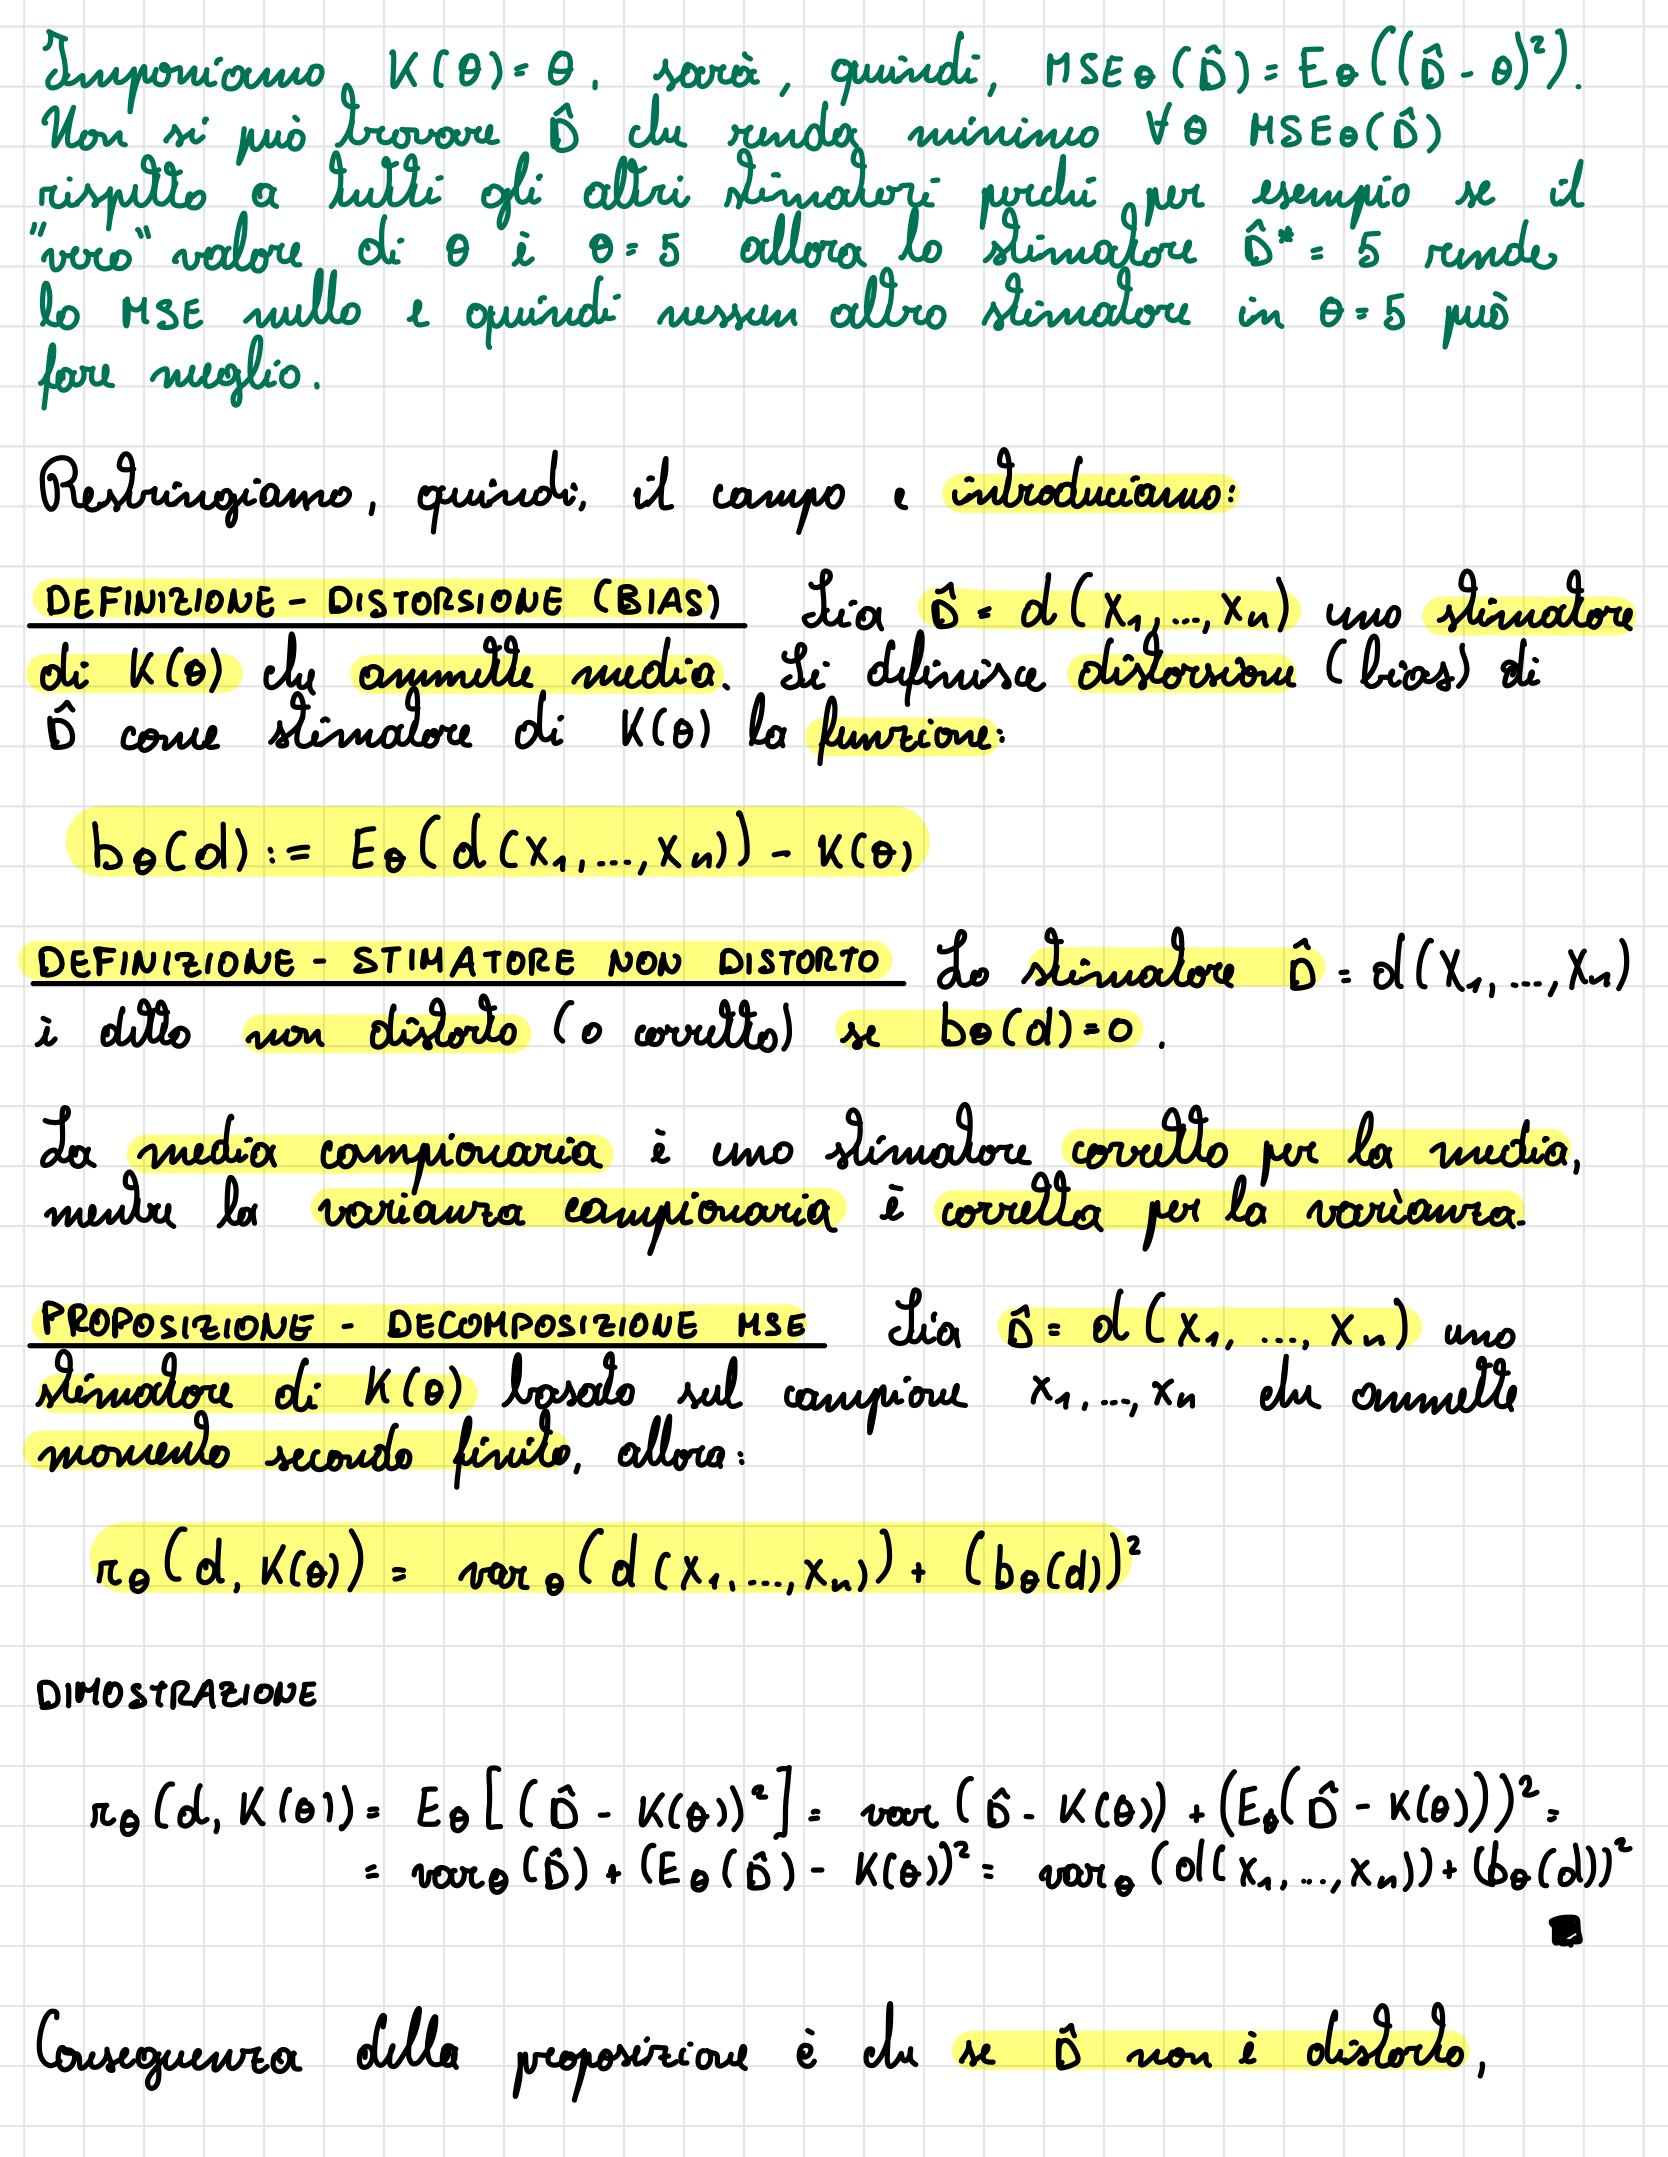 Imponiamo K(θ)=θ, sarà, quindi, MSEθ(D̂)=Eθ((D̂-θ)²).
Non si può trovare D̂ che renda minimo ∀θ MSEθ(D̂)
rispetto a tutti gli altri stimatori perché per esempio se il
"vero" valore di θ è θ=5 allora lo stimatore D̂*=5 rende
lo MSE nullo e quindi nessun altro stimatore in θ=5 può
fare meglio.
Restringiamo, quindi, il campo e introduciamo:
DEFINIZIONE - DISTORSIONE (BIAS) Sia D̂ = d(X₁,...,Xₙ) uno stimatore
di K(θ) che ammette media. Si definisce distorsione (bias) di
D̂ come stimatore di K(θ) la funzione:
bθ(d) := Eθ(d(X₁,...,Xₙ)) - K(θ)
DEFINIZIONE - STIMATORE NON DISTORTO Lo stimatore D̂ = d(X₁,...,Xₙ)
è detto non distorto (o corretto) se bθ(d)=0.
La media campionaria è uno stimatore corretto per la media,
mentre la varianza campionaria è corretta per la varianza.
PROPOSIZIONE - DECOMPOSIZIONE MSE Sia D̂ = d(X₁, ..., Xₙ) uno
stimatore di K(θ) basato sul campione X₁,...,Xₙ che ammette
momento secondo finito, allora:
rθ(d, K(θ)) = varθ(d(X₁,...,Xₙ)) + (bθ(d))²
DIMOSTRAZIONE
rθ(d, K(θ)) = Eθ[(D̂ - K(θ))²] = var(D̂ - K(θ)) + (Eθ(D̂ - K(θ)))² =
= varθ(D̂) + (Eθ(D̂) - K(θ))² = varθ(d(X₁,...,Xₙ)) + (bθ(d))²
Conseguenza della proposizione è che se D̂ non è distorto,